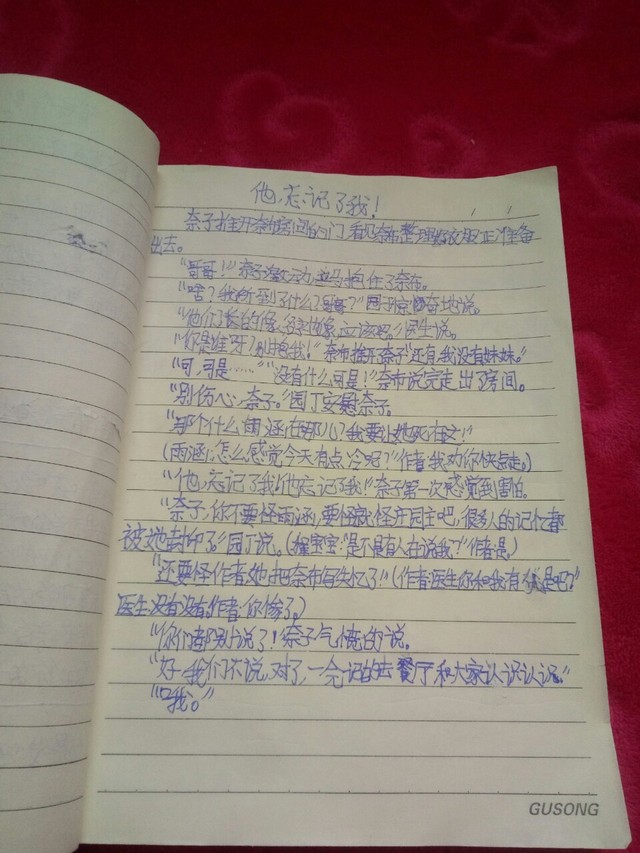 他,忘记了我!
奈子推开奈布房间的门,看见奈布整理好衣服正准备
出去。
“哥哥!”奈子激动,立马抱住了奈布。
“啥?我听到了什么?哥哥?”园丁惊奇地说。
“他们长的像,应该吧。”医生说。
“你是谁呀?别抱我!”奈布推开奈子“还有,我没有妹妹。”
“可,可是……”“没有什么可是!”奈布说完走出了房间。
“别伤心,奈子。”园丁安慰奈子。
“那个什么雨涵在哪儿?我要让她死在这!”
(雨涵:怎么感觉今天有点冷呢?”作者:我劝你快点走。)
“他,忘记了我!他忘记了我!”奈子第一次感觉到害怕。
“奈子,你不要怪雨涵,要怪就怪庄园主吧,很多人的记忆都
被她封印了。”园丁说。(宝宝:“是不是有人在说我?”作者:是)
“还要怪作者,她把奈布写失忆了!”(作者:医生你和我有仇是吧?”
医生:没有没有。作者:你惨了。)
“你们都别说了!”奈子气愤的说。
“好,我们不说,对了,一会记的去餐厅和大家认识认识。”
“哦。”
GUSONG